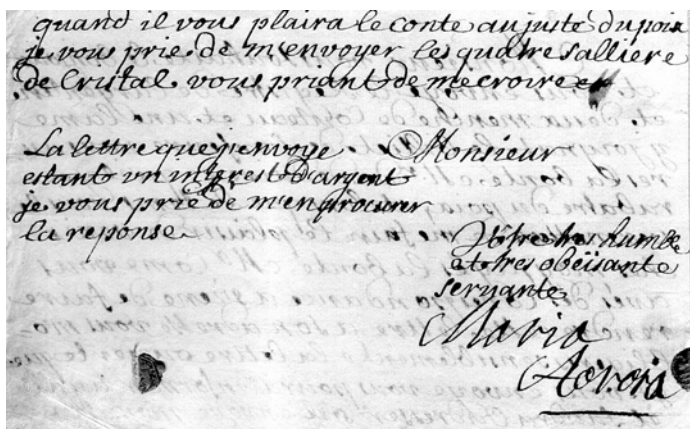 quand il vous plaira le conte au juste du pois
je vous prie de m'envoyer les quatre salliere
de Cristal vous priant de me croire
La lettre que j'envoye
estant un interest d'argent
je vous prie de m'en procurer
la reponse
Monsieur
Votre tres humble
et tres obeisante
servante
Maria
Aorora